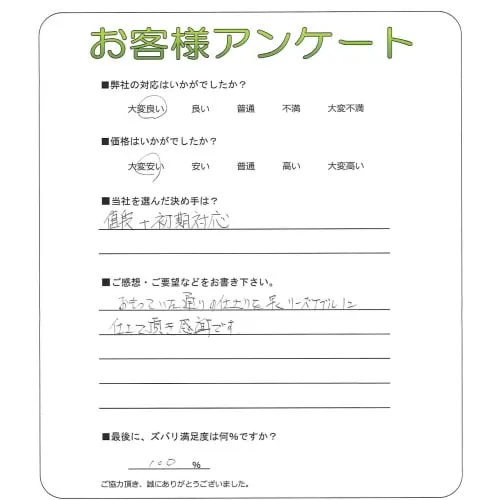 お客様アンケート
■弊社の対応はいかがでしたか？
大変良い 良い 普通 不満 大変不満
■価格はいかがでしたか？
大変安い 安い 普通 高い 大変高い
■当社を選んだ決め手は？
値段＋初期対応
■ご感想・ご要望などをお書き下さい。
おもっていた通りの仕上りを リーズナブルに
仕上て頂き感謝です
■最後に、ズバリ満足度は何％ですか？
100 ％
ご協力頂き、誠にありがとうございました。